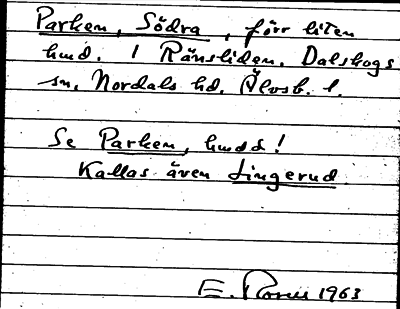 Parken, Södra, förr liten
hmd. i Ränsliden. Dalskogs
sn, Nordals hd. Älvsb. l.
Se Parken, hmdd!
Kallas även Lingerud
E. 1963